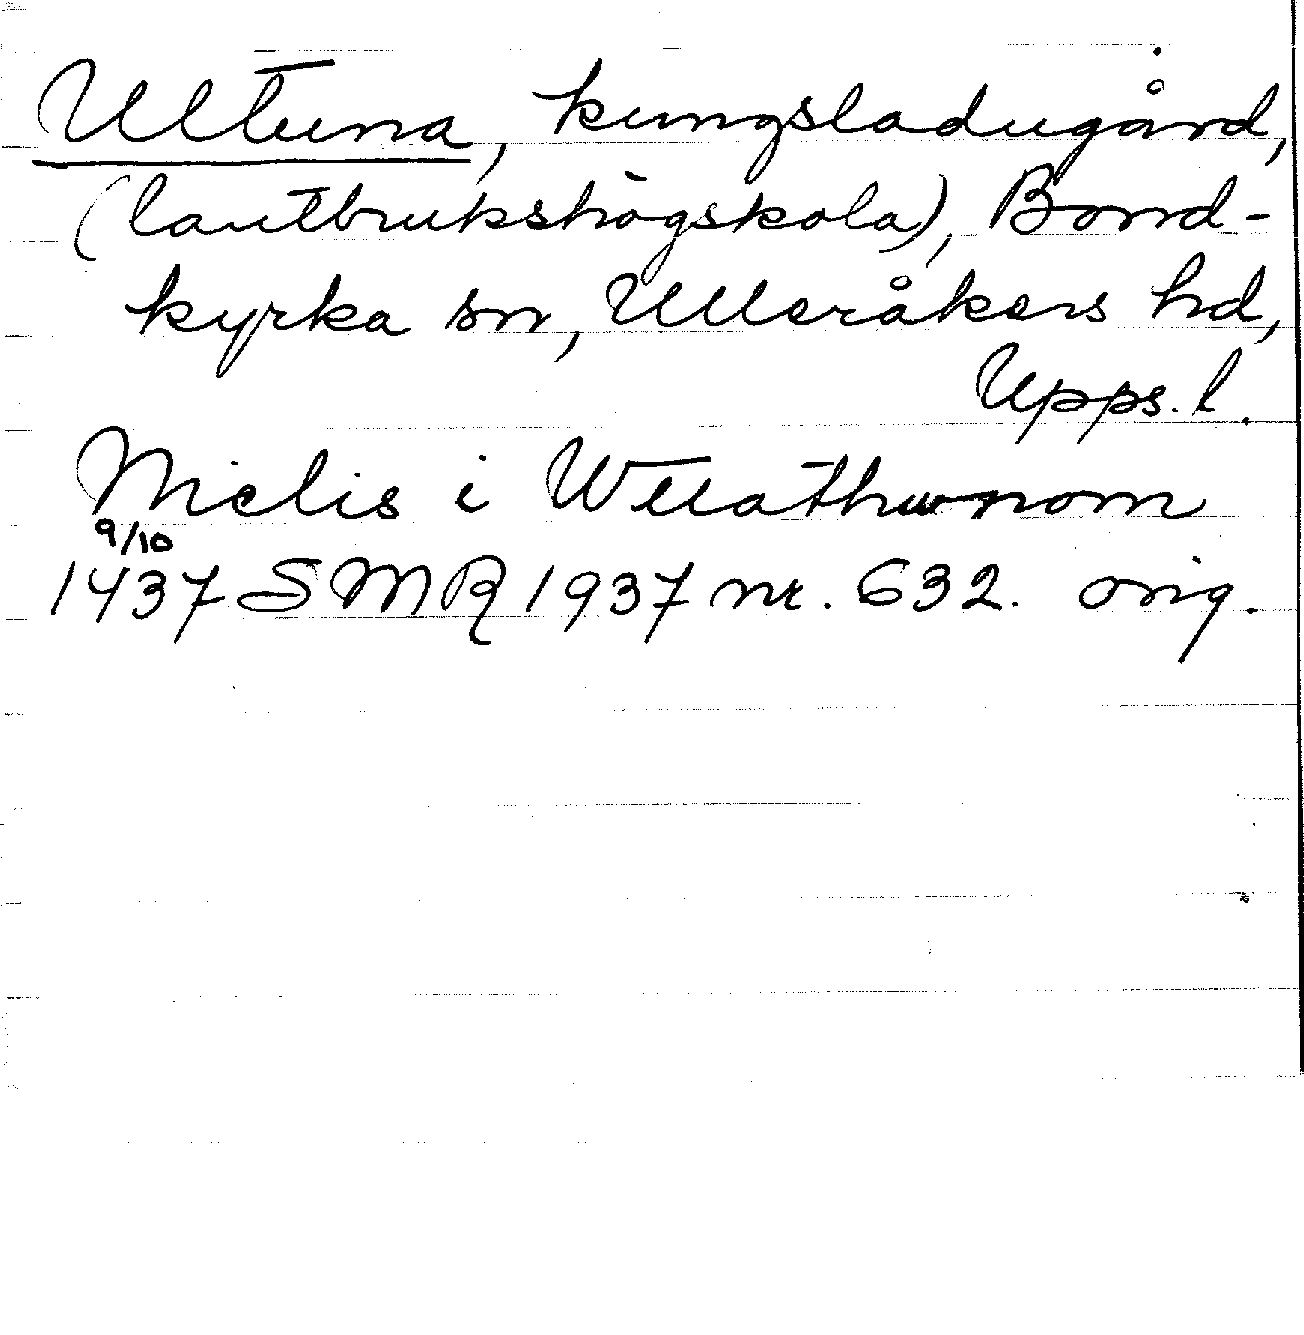 Ultuna, kungsladugård,
(lantbrukshögskola), Bond-
kyrka sn, Ulleråkers hd,
Upps. l.
Nielis i
9/10
1437 SMR 1937 nr. 632. orig.